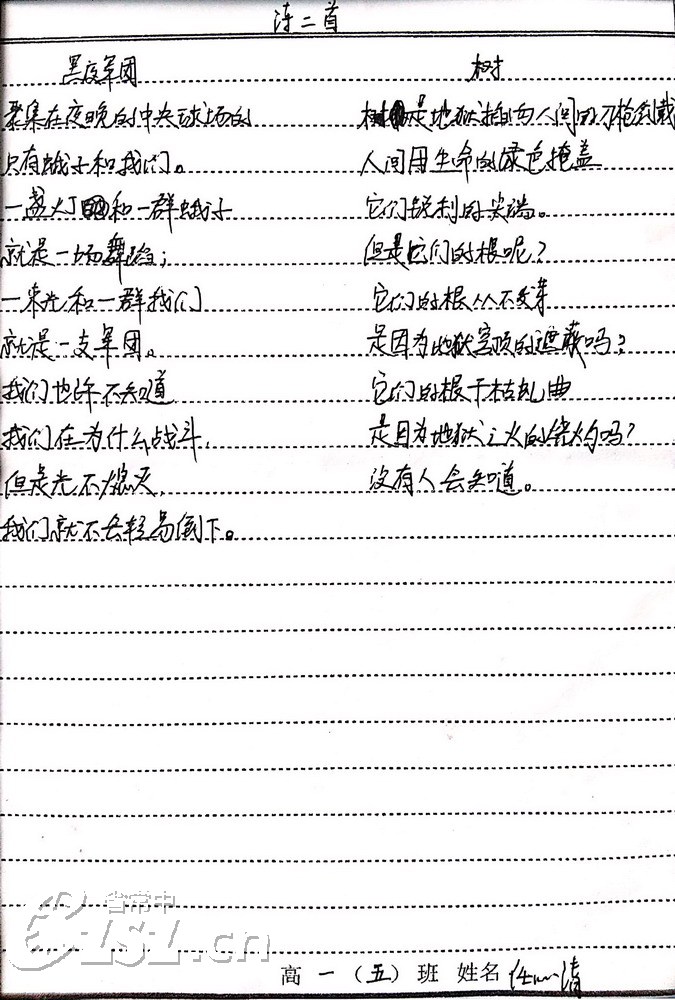 诗二首
黑夜军团
聚集在夜晚的中央球场的
只有蛾子和我们。
一盏灯和一群蛾子
就是一场舞蹈；
一束光和一群我们
就是一支军团。
我们也许不知道
我们在为什么战斗，
但是光不熄灭，
我们就不会轻易倒下。
树
树是地狱指向人间的刀枪剑戟
人间用生命的绿色掩盖
它们锐利的尖端。
但是它们的根呢？
它们的根从不发芽
是因为地狱穹顶的遮蔽吗？
它们的根干枯乱曲
是因为地狱之火的烧灼吗？
没有人会知道。
省常中
czsz.cn
高一（五）班 姓名